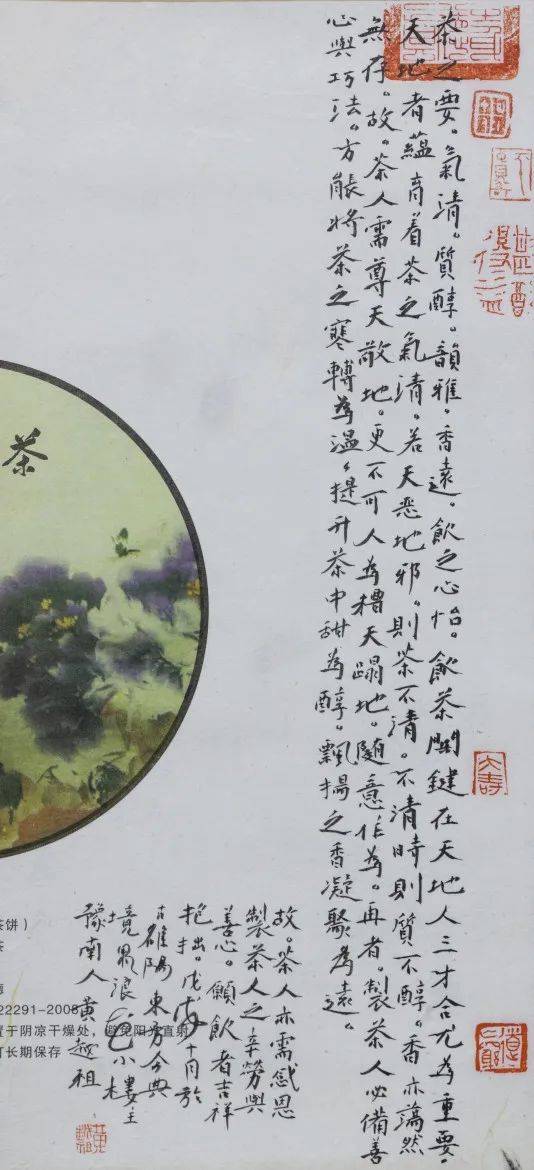 茶之要。氣清。質醇。韻雅。香遠。飲之心怡。飲茶関鍵在天地人三才合尤為重要
天地者蘊育着茶之氣清。若天恶地邪。則茶不清。不清時則質不醇。香亦蕩然
無存。故。茶人需尊天敬地。更不可人為糟天蹋地。随意作為。再者。製茶人必備善
心與巧法。方能将茶之寒轉為温，提升茶中甜為醇。飄揚之香凝聚為遠。
故。茶人亦需感恩
製茶人之辛勞與
善心。願飲者吉祥
抱拙。戊戌十月於
古睢陽東方今典
境界浪花小樓主
豫南人黄超祖
茶
茶饼）
茶
22291-2008
置于阴凉干燥处，避免阳光直射
可长期保存
大壽